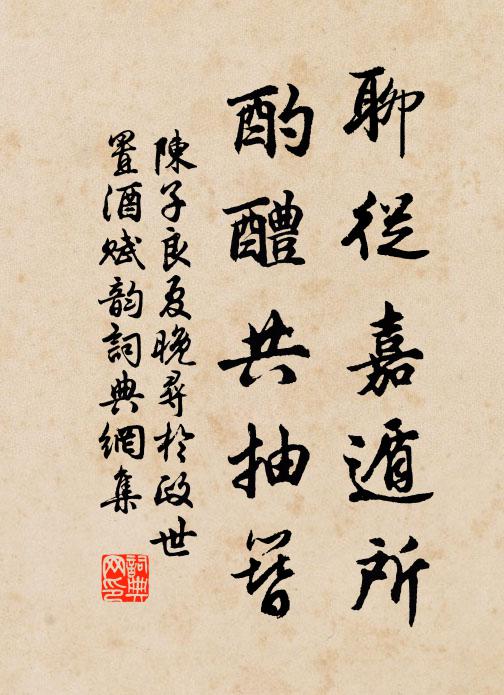 聊從嘉遁所
酌醴共抽簪
陳子良夏晚尋於政世
置酒賦韵詞典網集
詞典
网印